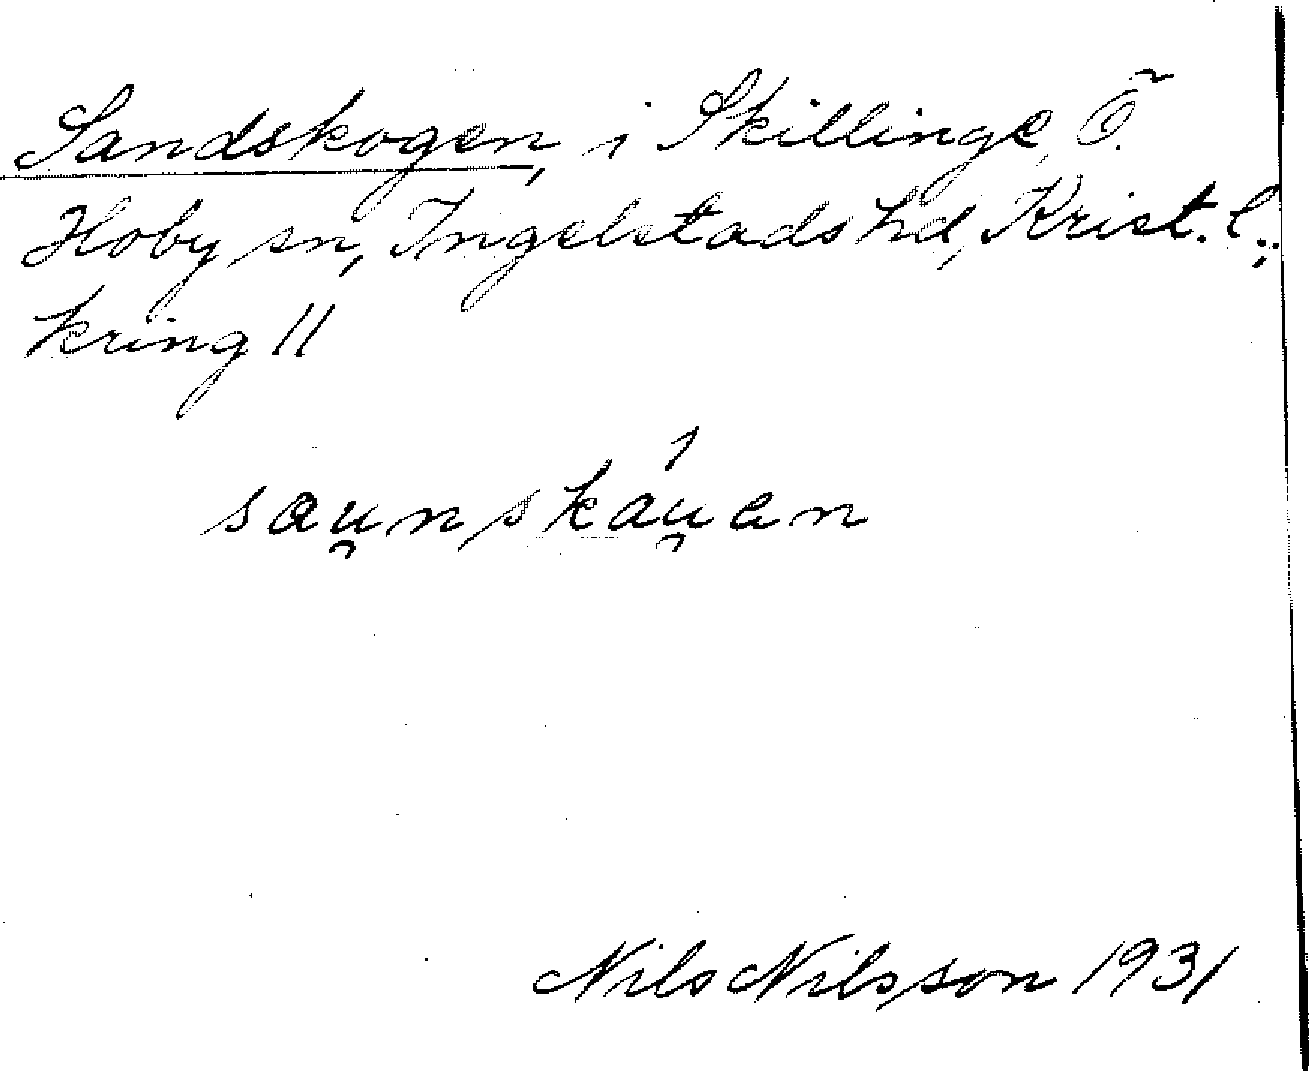 Sandskogen, i Skillinge, Ö.
Hoby sn, Ingelstads hd, Krist. l.;
kring 11
sau̯nskáu̯en
Nils Nilsson 1931